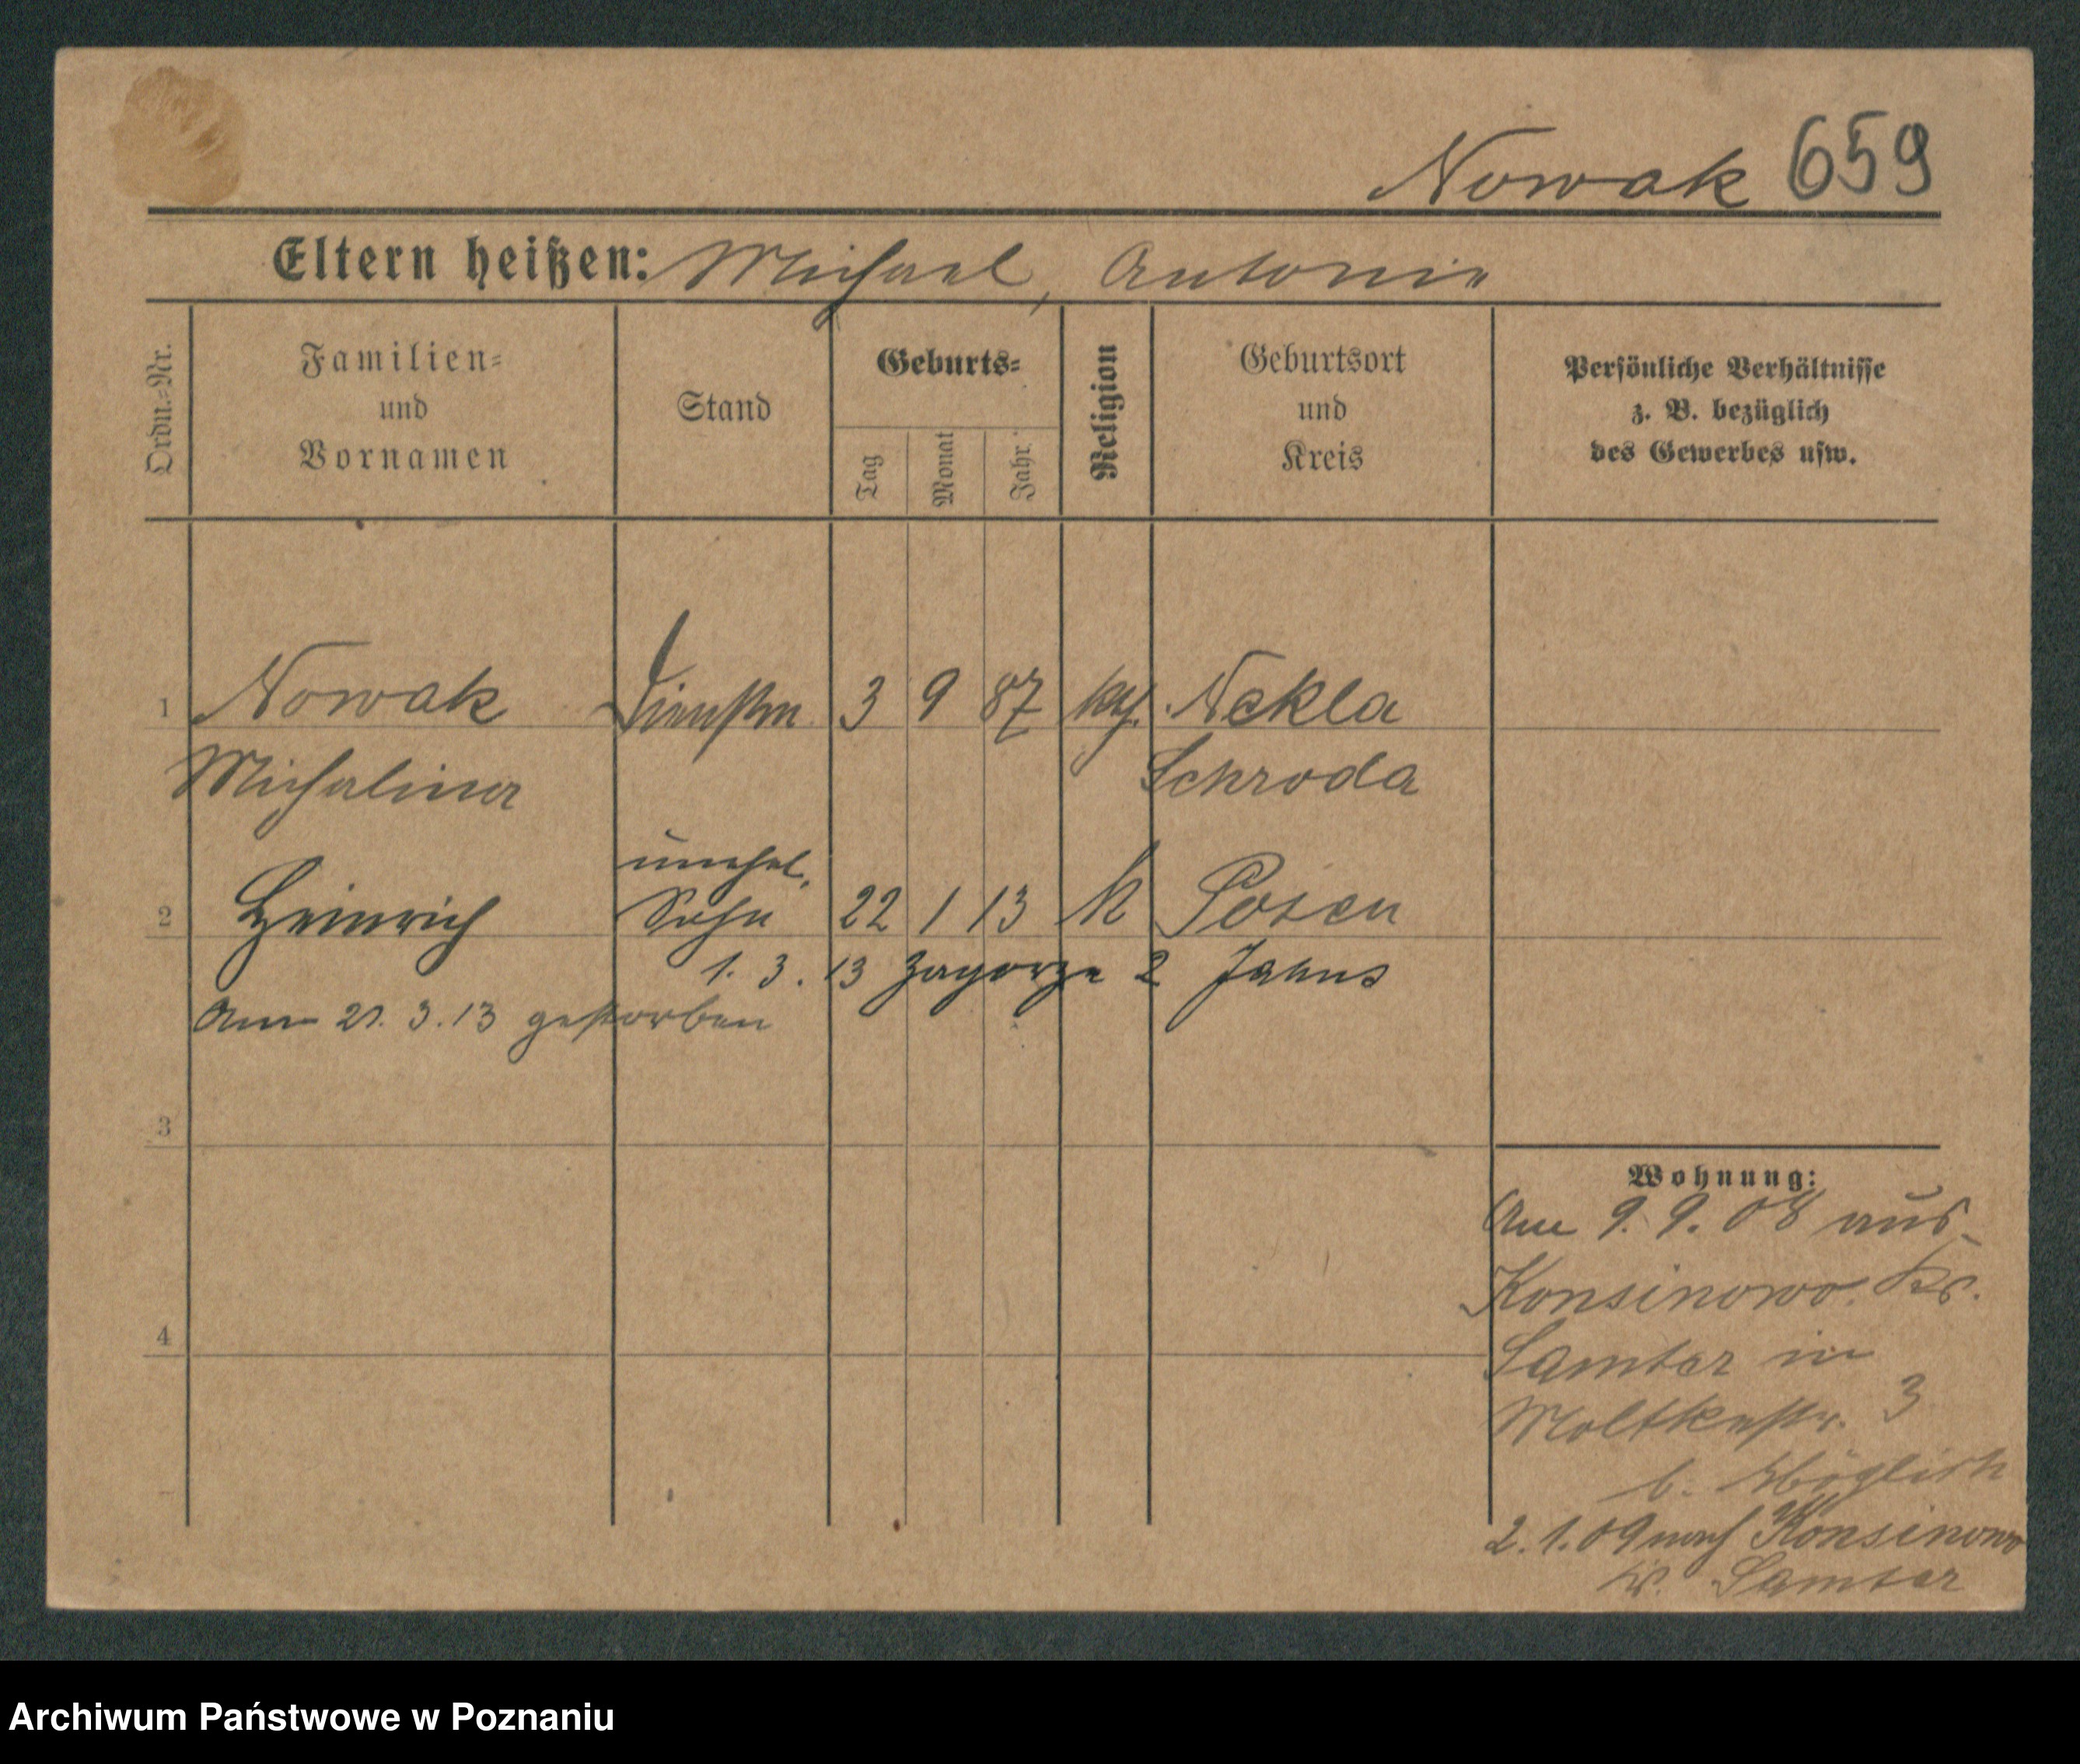 Nowak 659
Eltern heißen: Michael, Antonie
Ordn.-Nr.
Familien-
und
Vornamen
Stand
Geburts-
Tag
Monat
Jahr.
Religion
Geburtsort
und
Kreis
Persönliche Verhältnisse
z. B. bezüglich
des Gewerbes usw.
1 Nowak Dienstm. 3 9 87 kth. Nekla
Michalina Schroda
unehel.
2 Heinrich Sohn 22 1 13 k Posen
1. 3. 13 Zagorze 2 Jahns
Am 21. 3. 13 gestorben
3
Wohnung:
Am 9. 9. 08 aus
Konsinowo. Kr.
4
Samter in
Moltkestr. 3
b.
2. 1. 09 nach Konsinowo
Kr. Samter
Archiwum Państwowe w Poznaniu